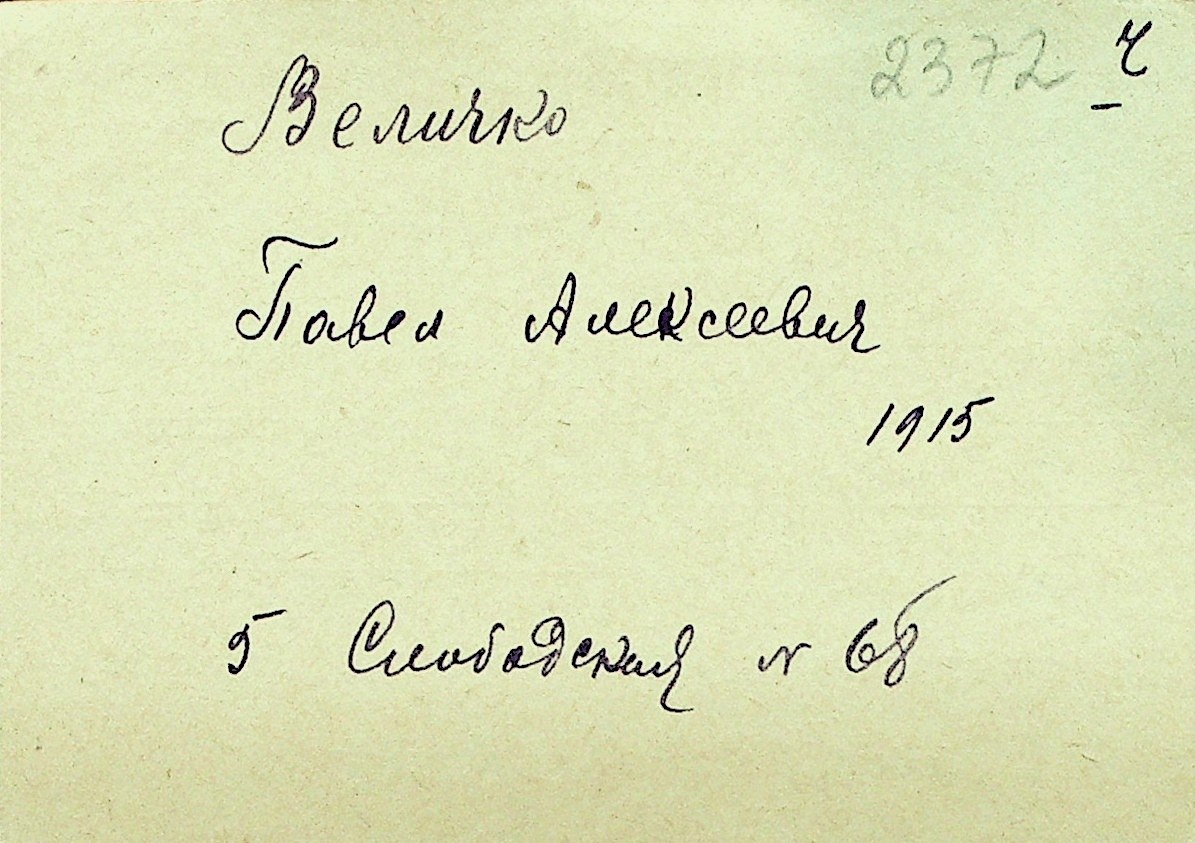 2372 ч
Величко
Павел Алексеевич
1915
5 Слободская № 68